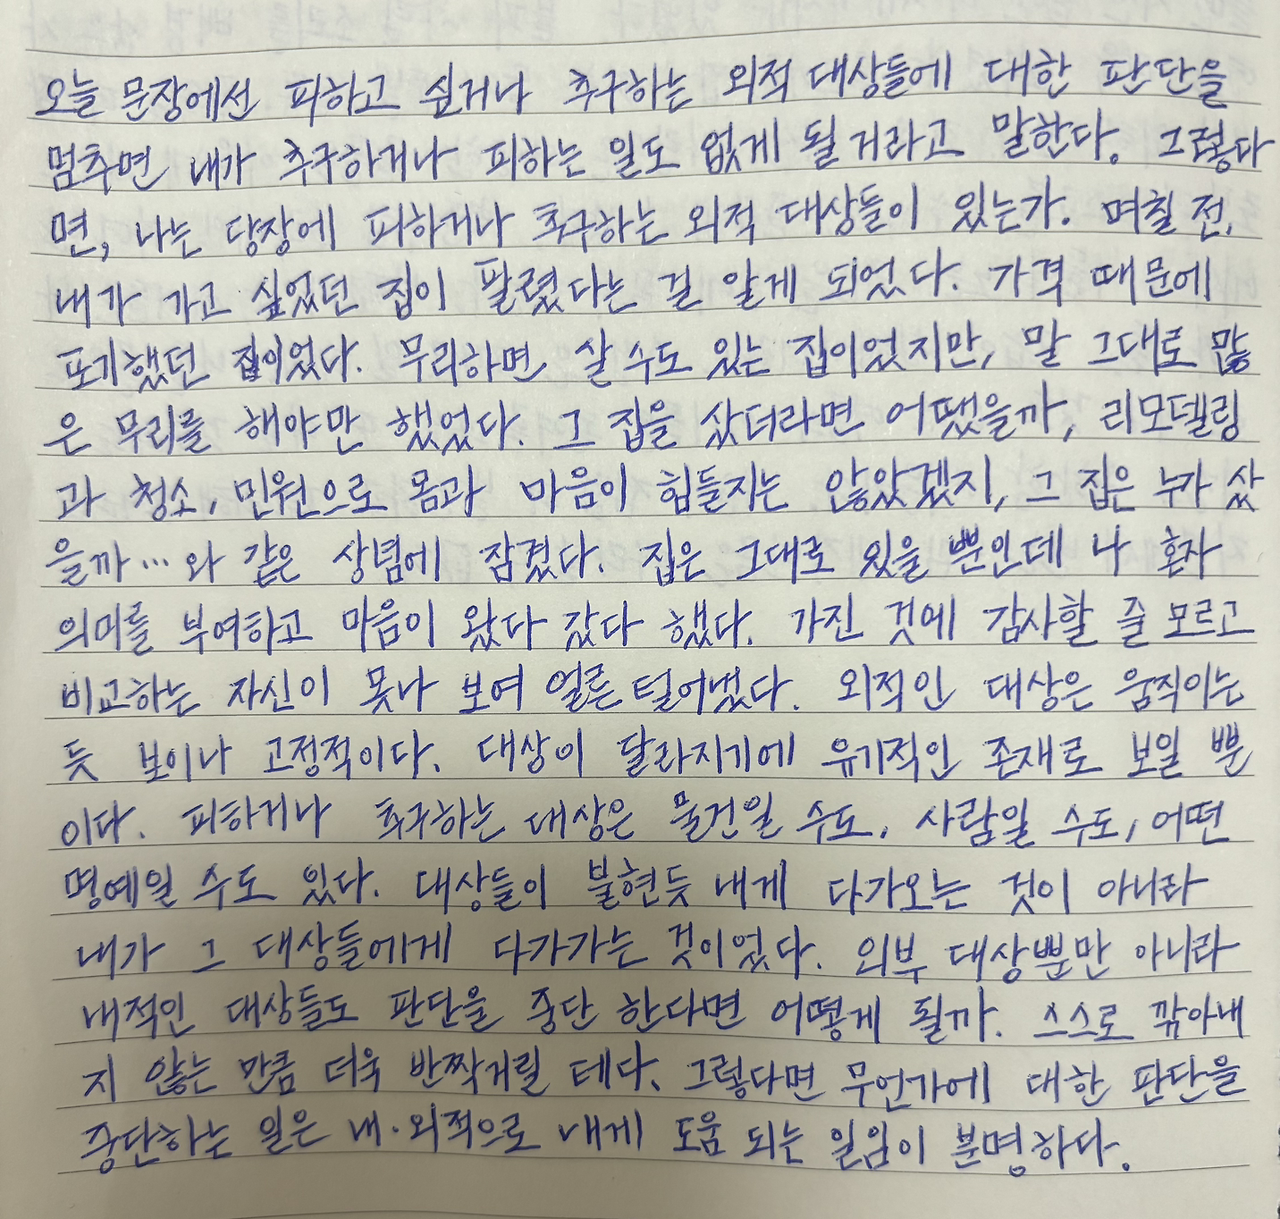 오늘 문장에선 피하고 싶거나 추구하는 외적 대상들에 대한 판단을
멈추면 내가 추구하거나 피하는 일도 없게 될 거라고 말한다. 그렇다
면, 나는 당장에 피하거나 추구하는 외적 대상들이 있는가. 며칠 전,
내가 가고 싶었던 집이 팔렸다는 걸 알게 되었다. 가격 때문에
포기했던 집이었다. 무리하면 살 수도 있는 집이었지만, 말 그대로 많
은 무리를 해야만 했었다. 그 집을 샀더라면 어땠을까, 리모델링
과 청소, 민원으로 몸과 마음이 힘들지는 않았겠지, 그 집은 누가 샀
을까... 와 같은 상념에 잠겼다. 집은 그대로 있을 뿐인데 나 혼자
의미를 부여하고 마음이 왔다 갔다 했다. 가진 것에 감사할 줄 모르고
비교하는 자신이 못나 보여 얼른 털어냈다. 외적인 대상은 움직이는
듯 보이나 고정적이다. 대상이 달라지기에 유기적인 존재로 보일 뿐
이다. 피하거나 추구하는 대상은 물건일 수도, 사람일 수도, 어떤
명예일 수도 있다. 대상들이 불현듯 내게 다가오는 것이 아니라
내가 그 대상들에게 다가가는 것이었다. 외부 대상뿐만 아니라
내적인 대상들도 판단을 중단 한다면 어떻게 될까. 스스로 깎아내
지 않는 만큼 더욱 반짝거릴 테다. 그렇다면 무언가에 대한 판단을
중단하는 일은 내·외적으로 내게 도움 되는 일임이 분명하다.